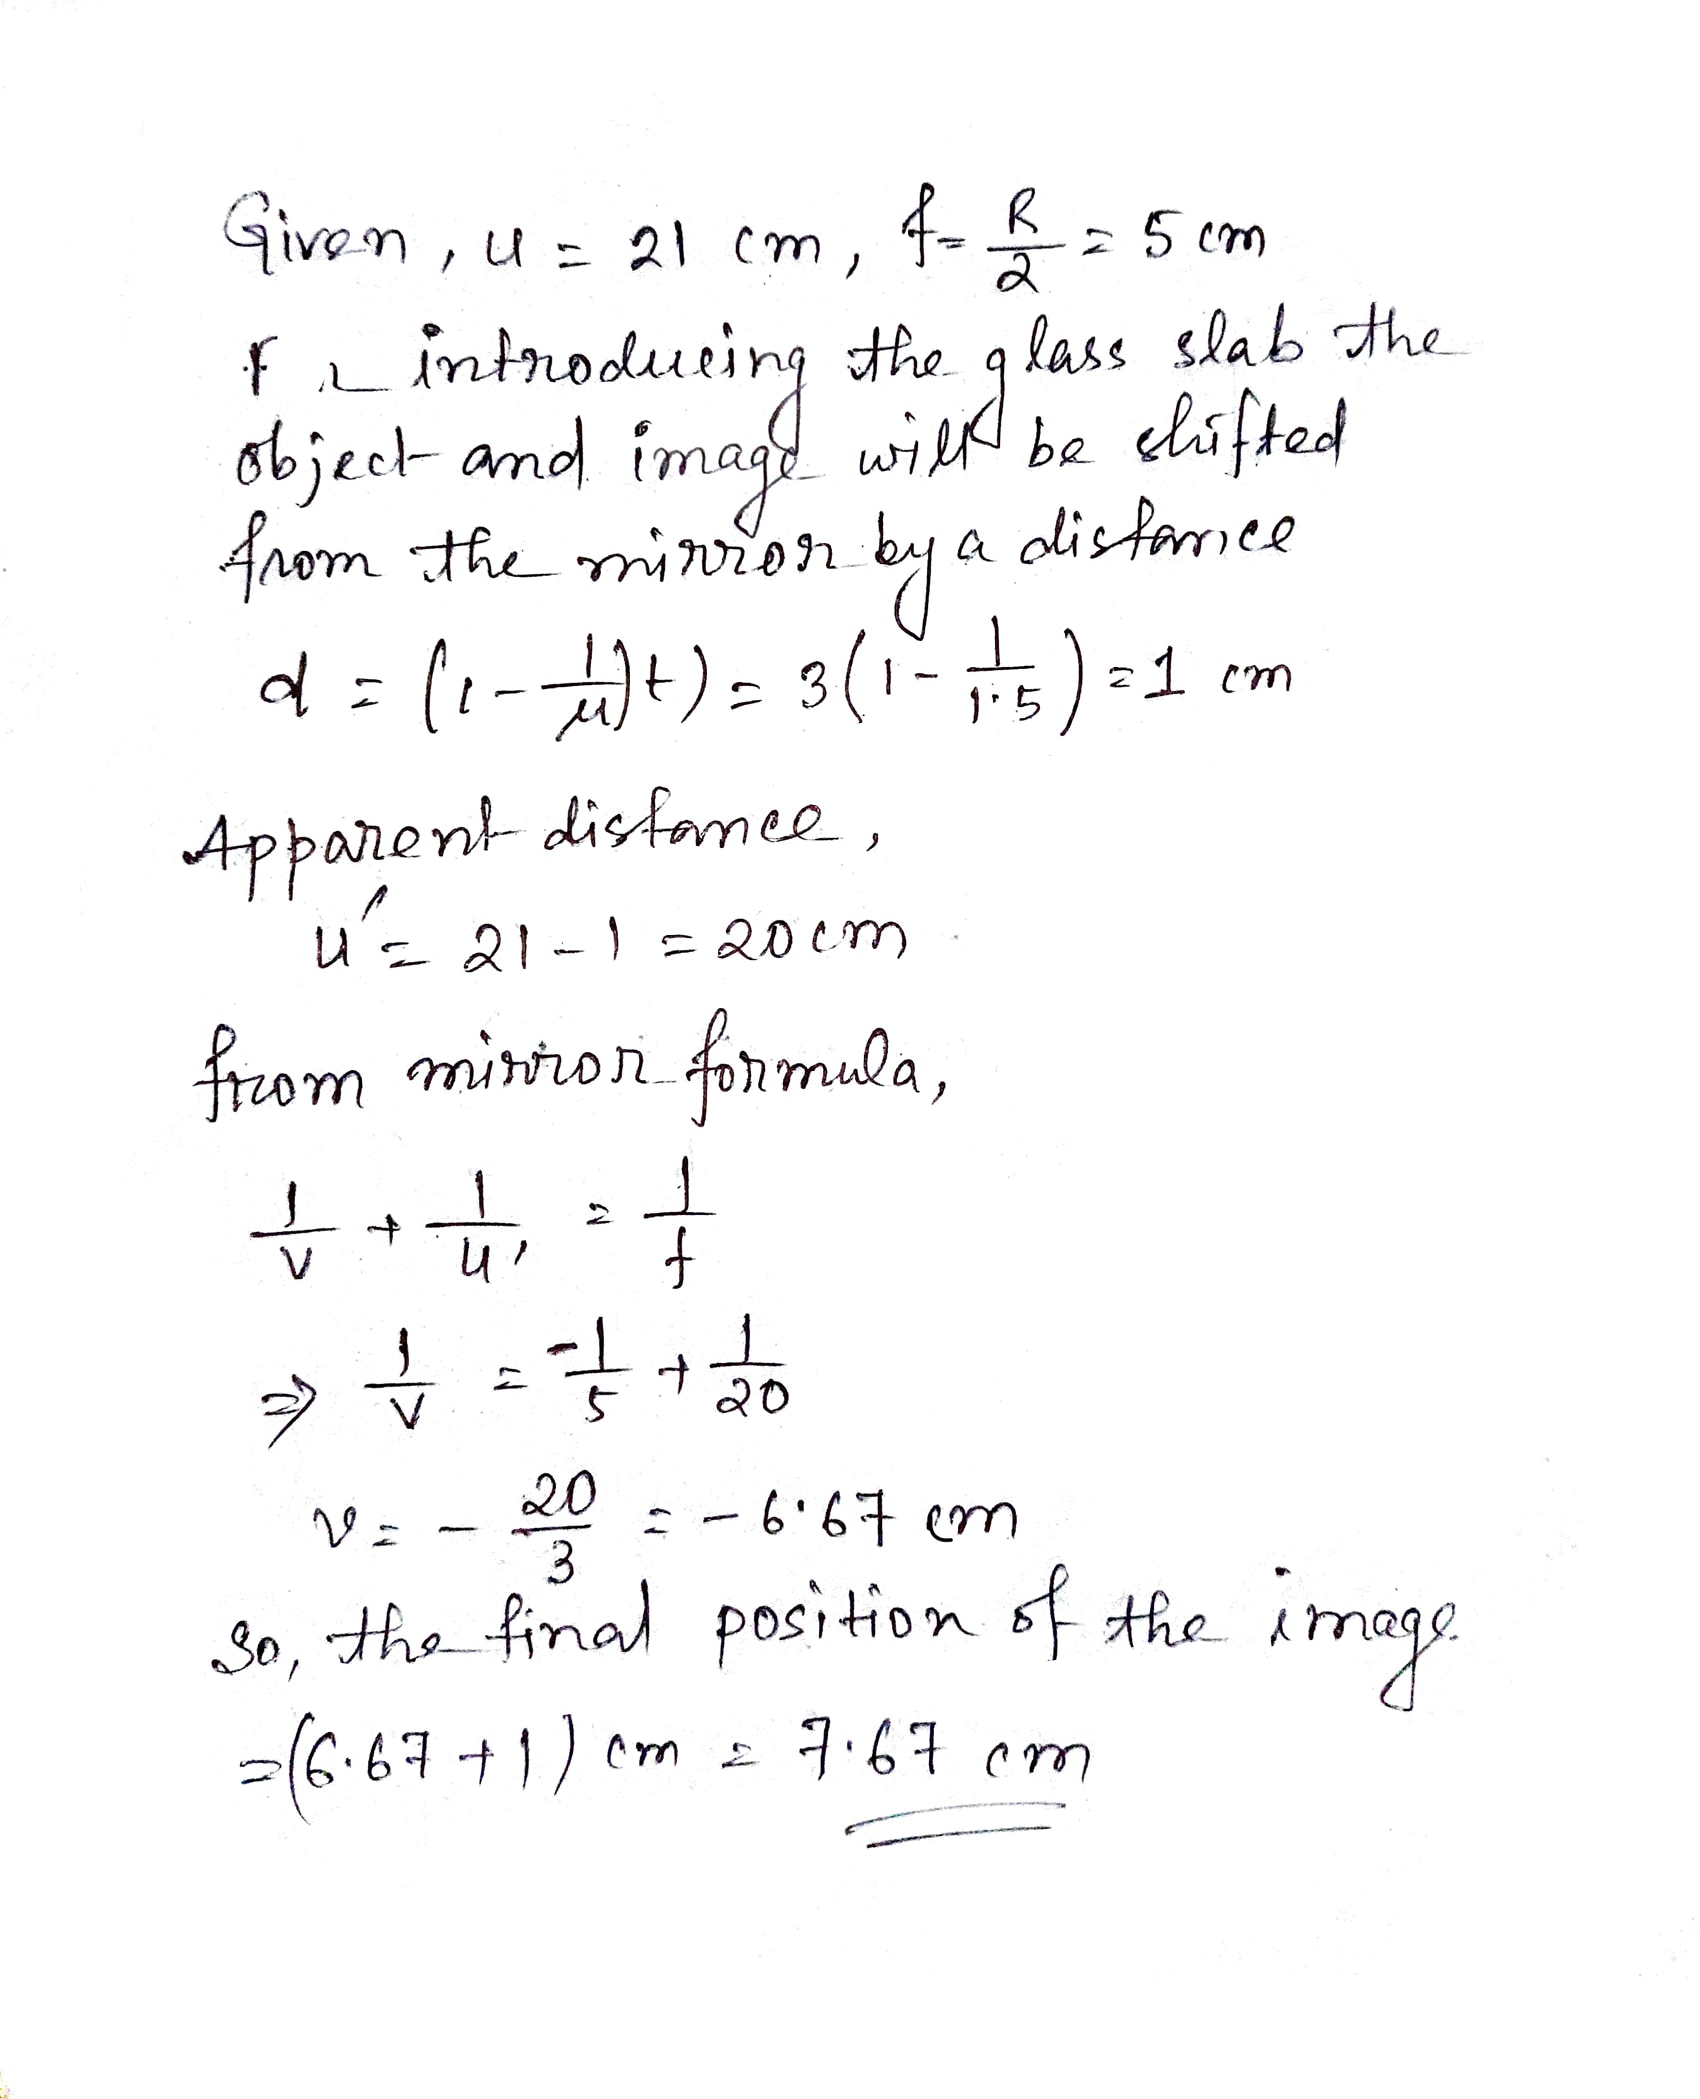 Given, u = 21 cm, f = R/2 = 5 cm
introducing the glass slab the
object and image will be shifted
from the mirror by a distance
d = (1 - 1/μ)t) = 3(1 - 1/1.5) = 1 cm
Apparent distance,
u' = 21 - 1 = 20 cm
from mirror formula,
1/v + 1/u' = 1/f
⇒ 1/v = -1/5 + 1/20
v = - 20/3 = - 6.67 cm
So, the final position of the image
= (6.67 + 1) cm = 7.67 cm